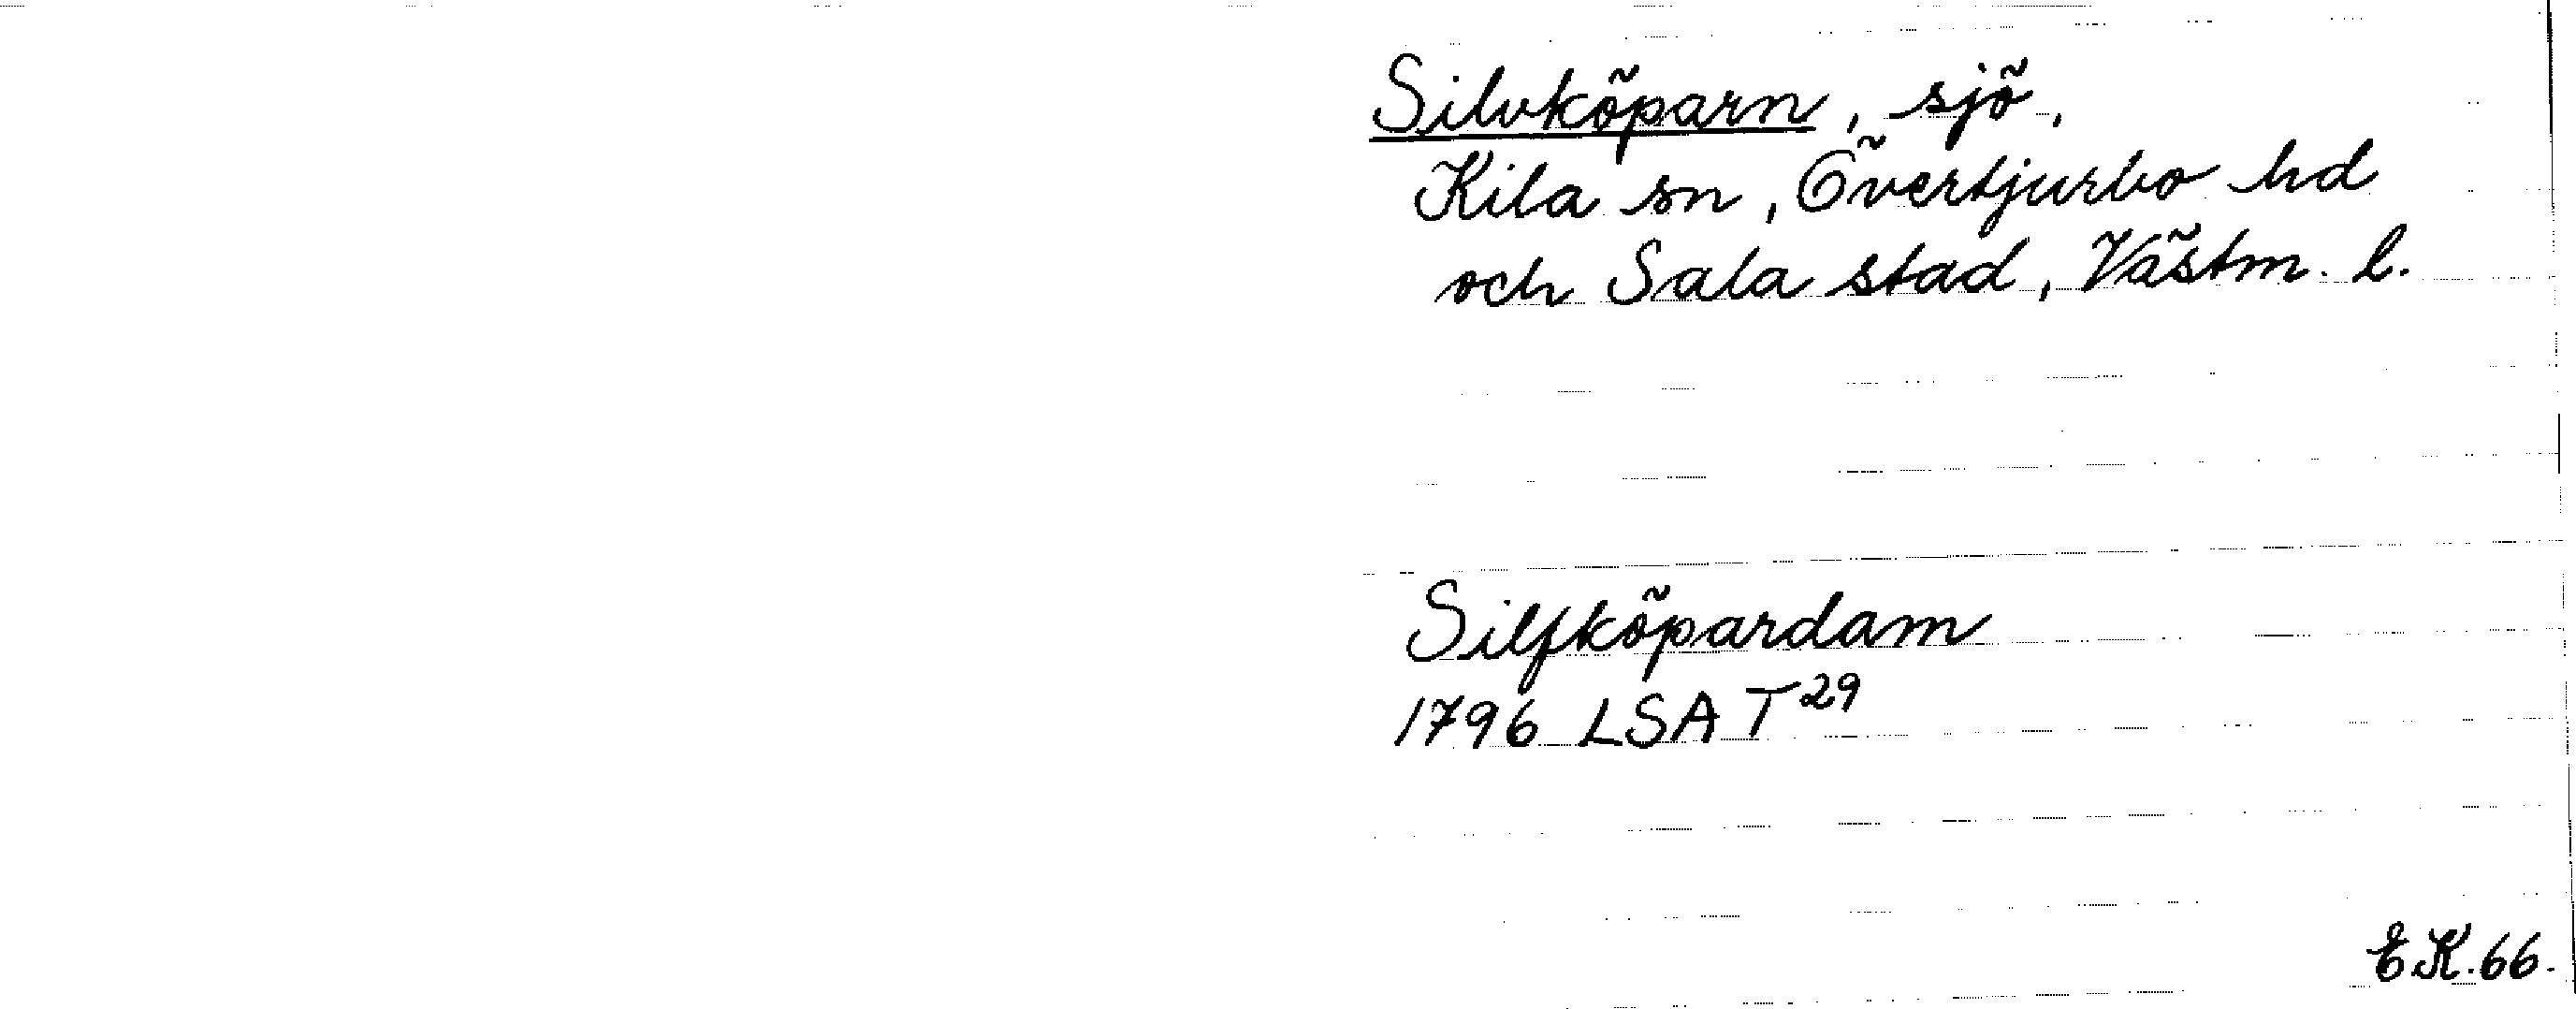 Silvköparn, sjö,
Kila sn, Övertjurbo hd
och Sala stad, Västm. l.
Silfköpardam
1796 LSA T²⁹
E.K. 66.